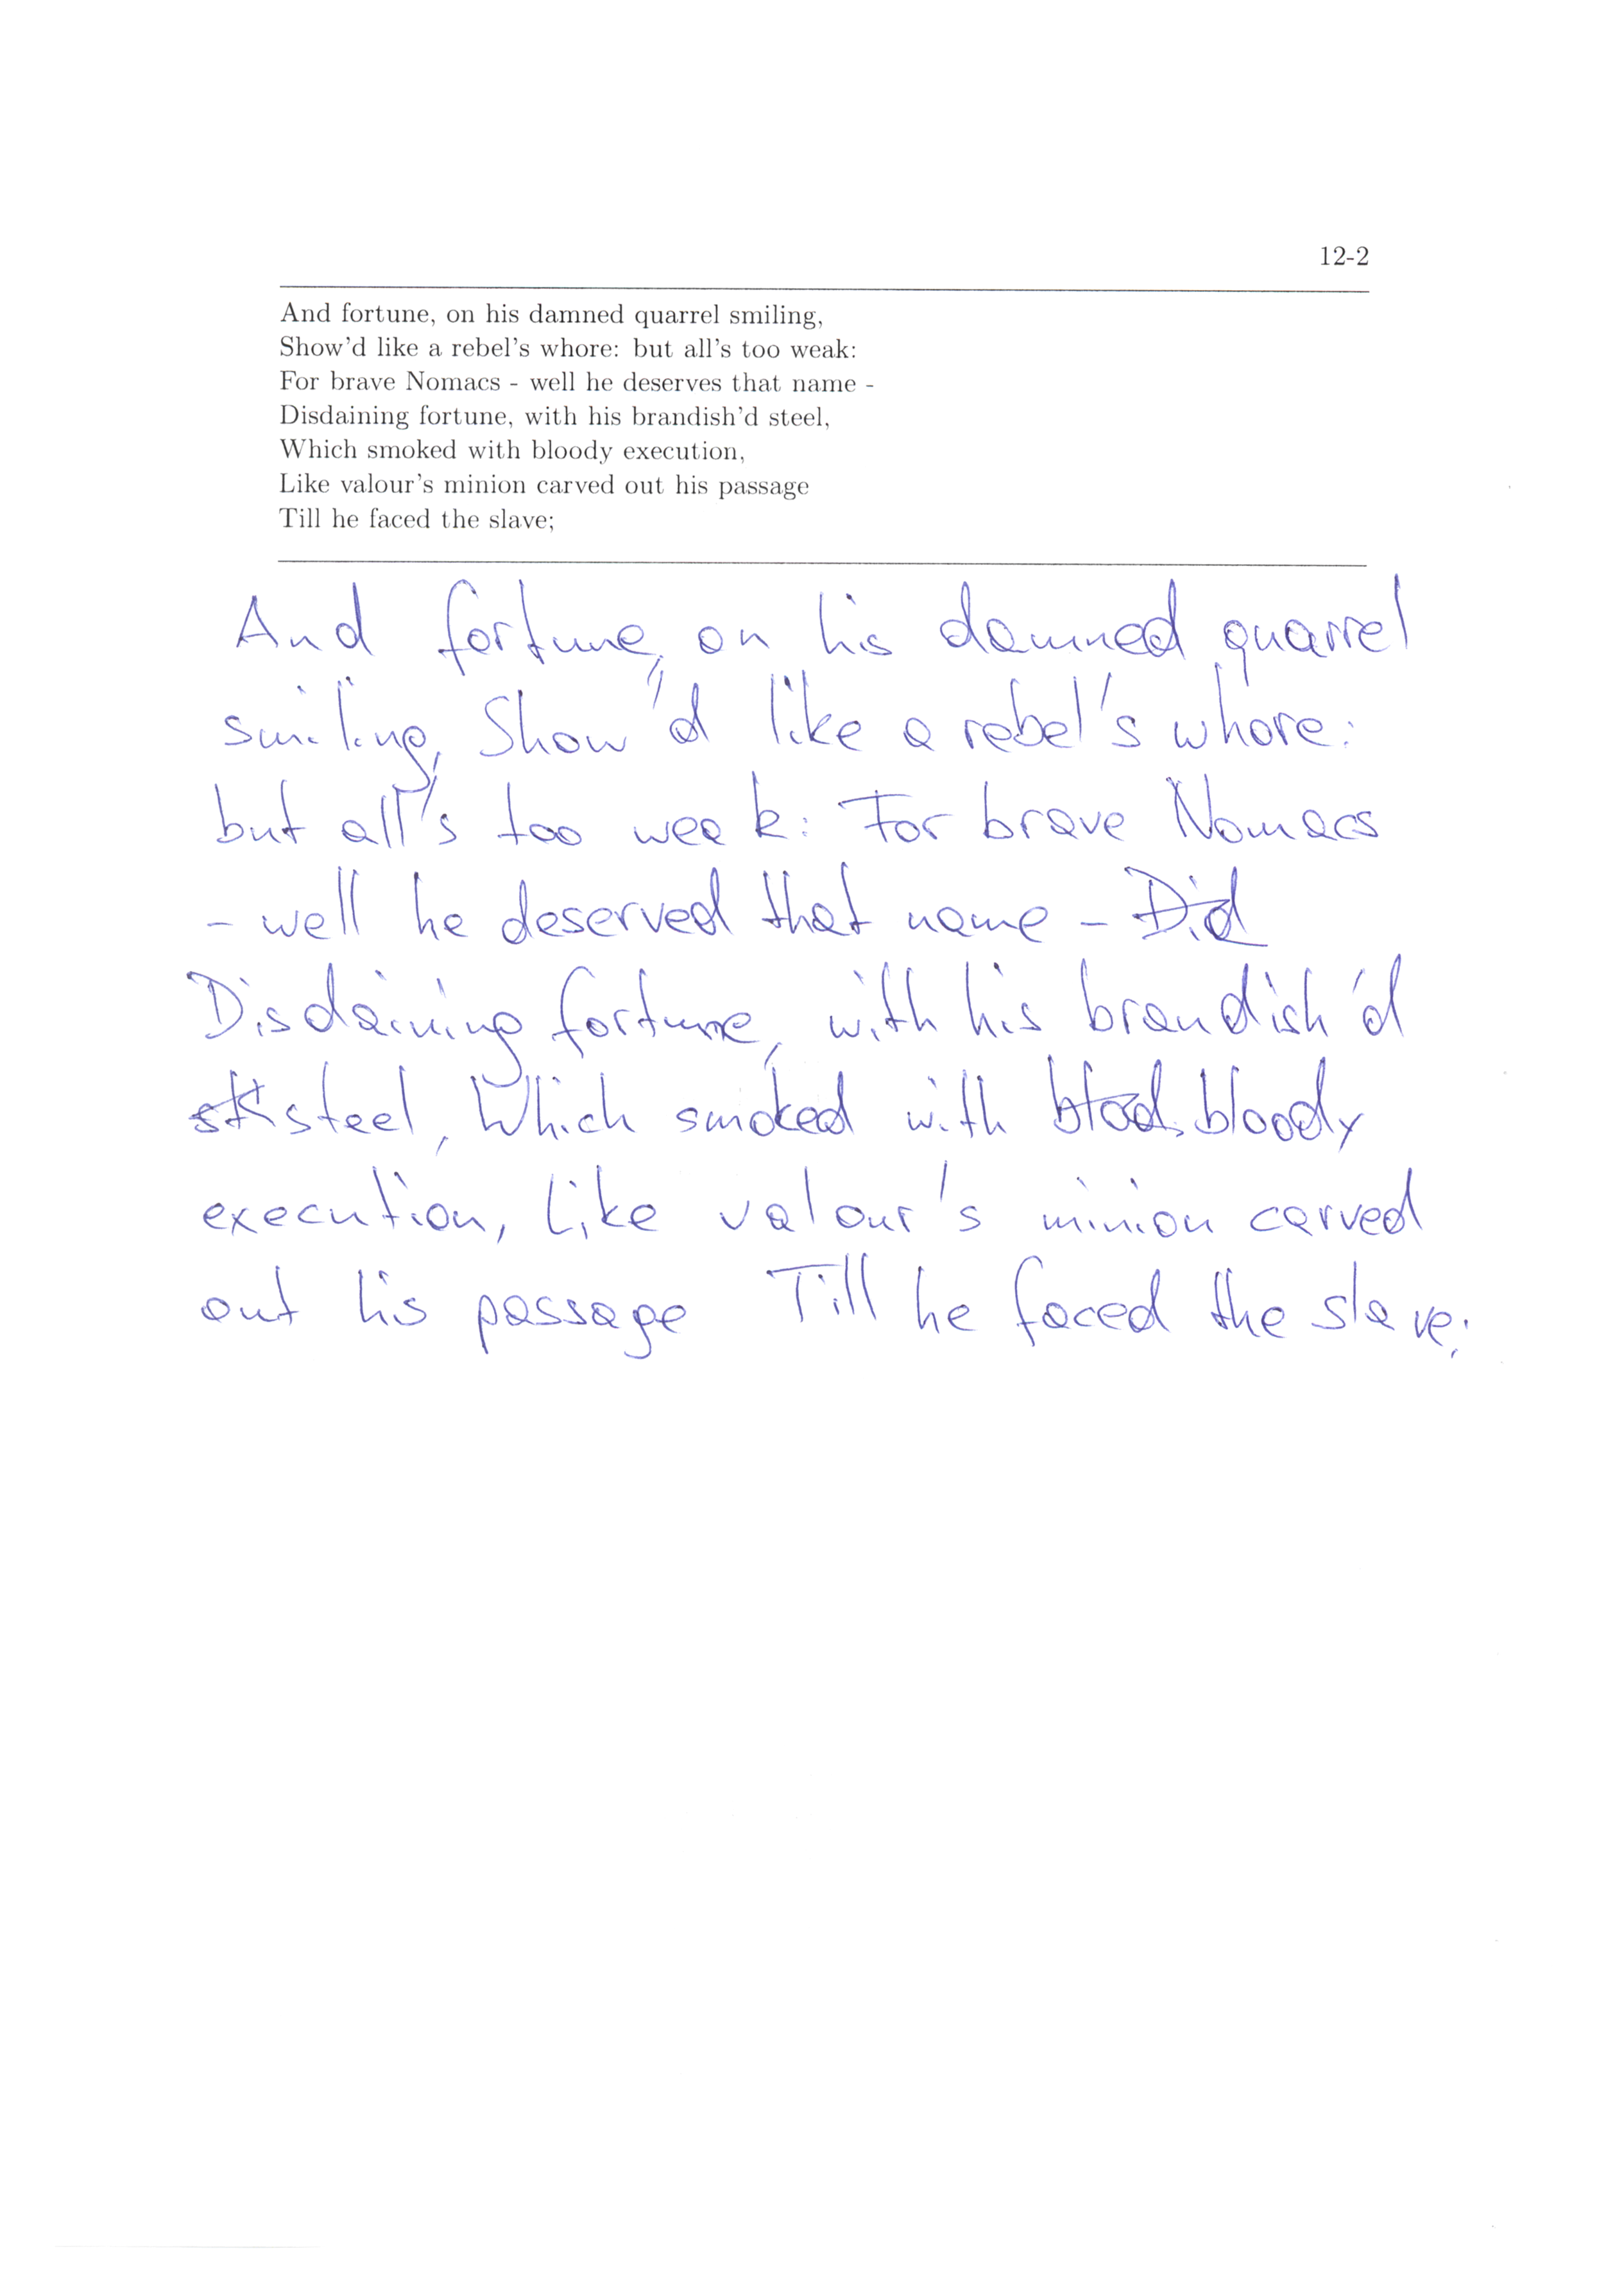 12-2
And fortune, on his damned quarrel smiling,
Show'd like a rebel's whore: but all's too weak:
For brave Nomacs - well he deserves that name -
Disdaining fortune, with his brandish'd steel,
Which smoked with bloody execution,
Like valour's minion carved out his passage
Till he faced the slave;
And fortune, on his damned quarrel
smiling, Show'd like a rebel's whore:
but all's too weak: For brave Nomacs
- well he deserved that name - Did
Disdaining fortune, with his brandish'd
steel, Which smoked with blood bloody
execution, Like valour's minion carved
out his passage Till he faced the slave;